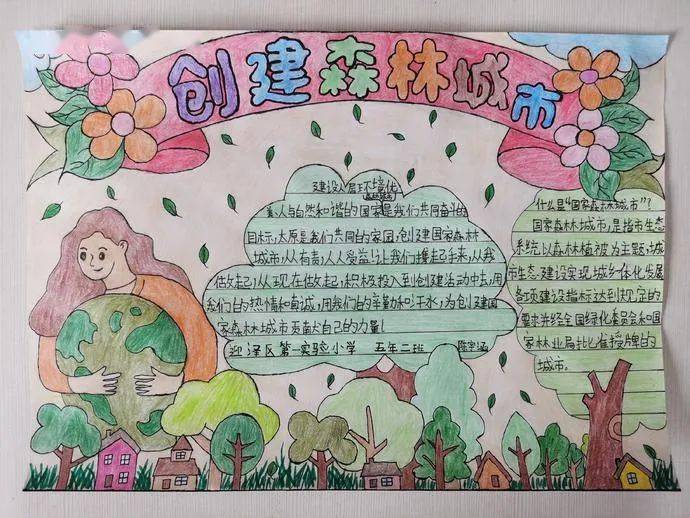 创建森林城市
建设人居环境优
美,人与自然和谐的国家是我们共同奋斗的
目标,太原是我们共同的家园,创建国家森林
城市,人人有责,人人受益!让我们携起手来,从我
做起,从现在做起,积极投入到创建活动中去,用
我们的热情和真诚,用我们的辛勤和汗水,为创建国
家森林城市贡献自己的力量!
迎泽区第一实验小学 五年二班
什么是"国家森林城市"?
国家森林城市,是指市生态
系统以森林植被为主题,城
市生态建设实现城乡一体化发展
各项建设指标达到规定的
要求并经全国绿化委员会和国
家林业局批准授牌的
城市。